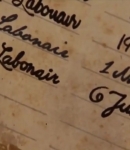 Labonair
Labonair 19
Labonair 1 M
6 Ju